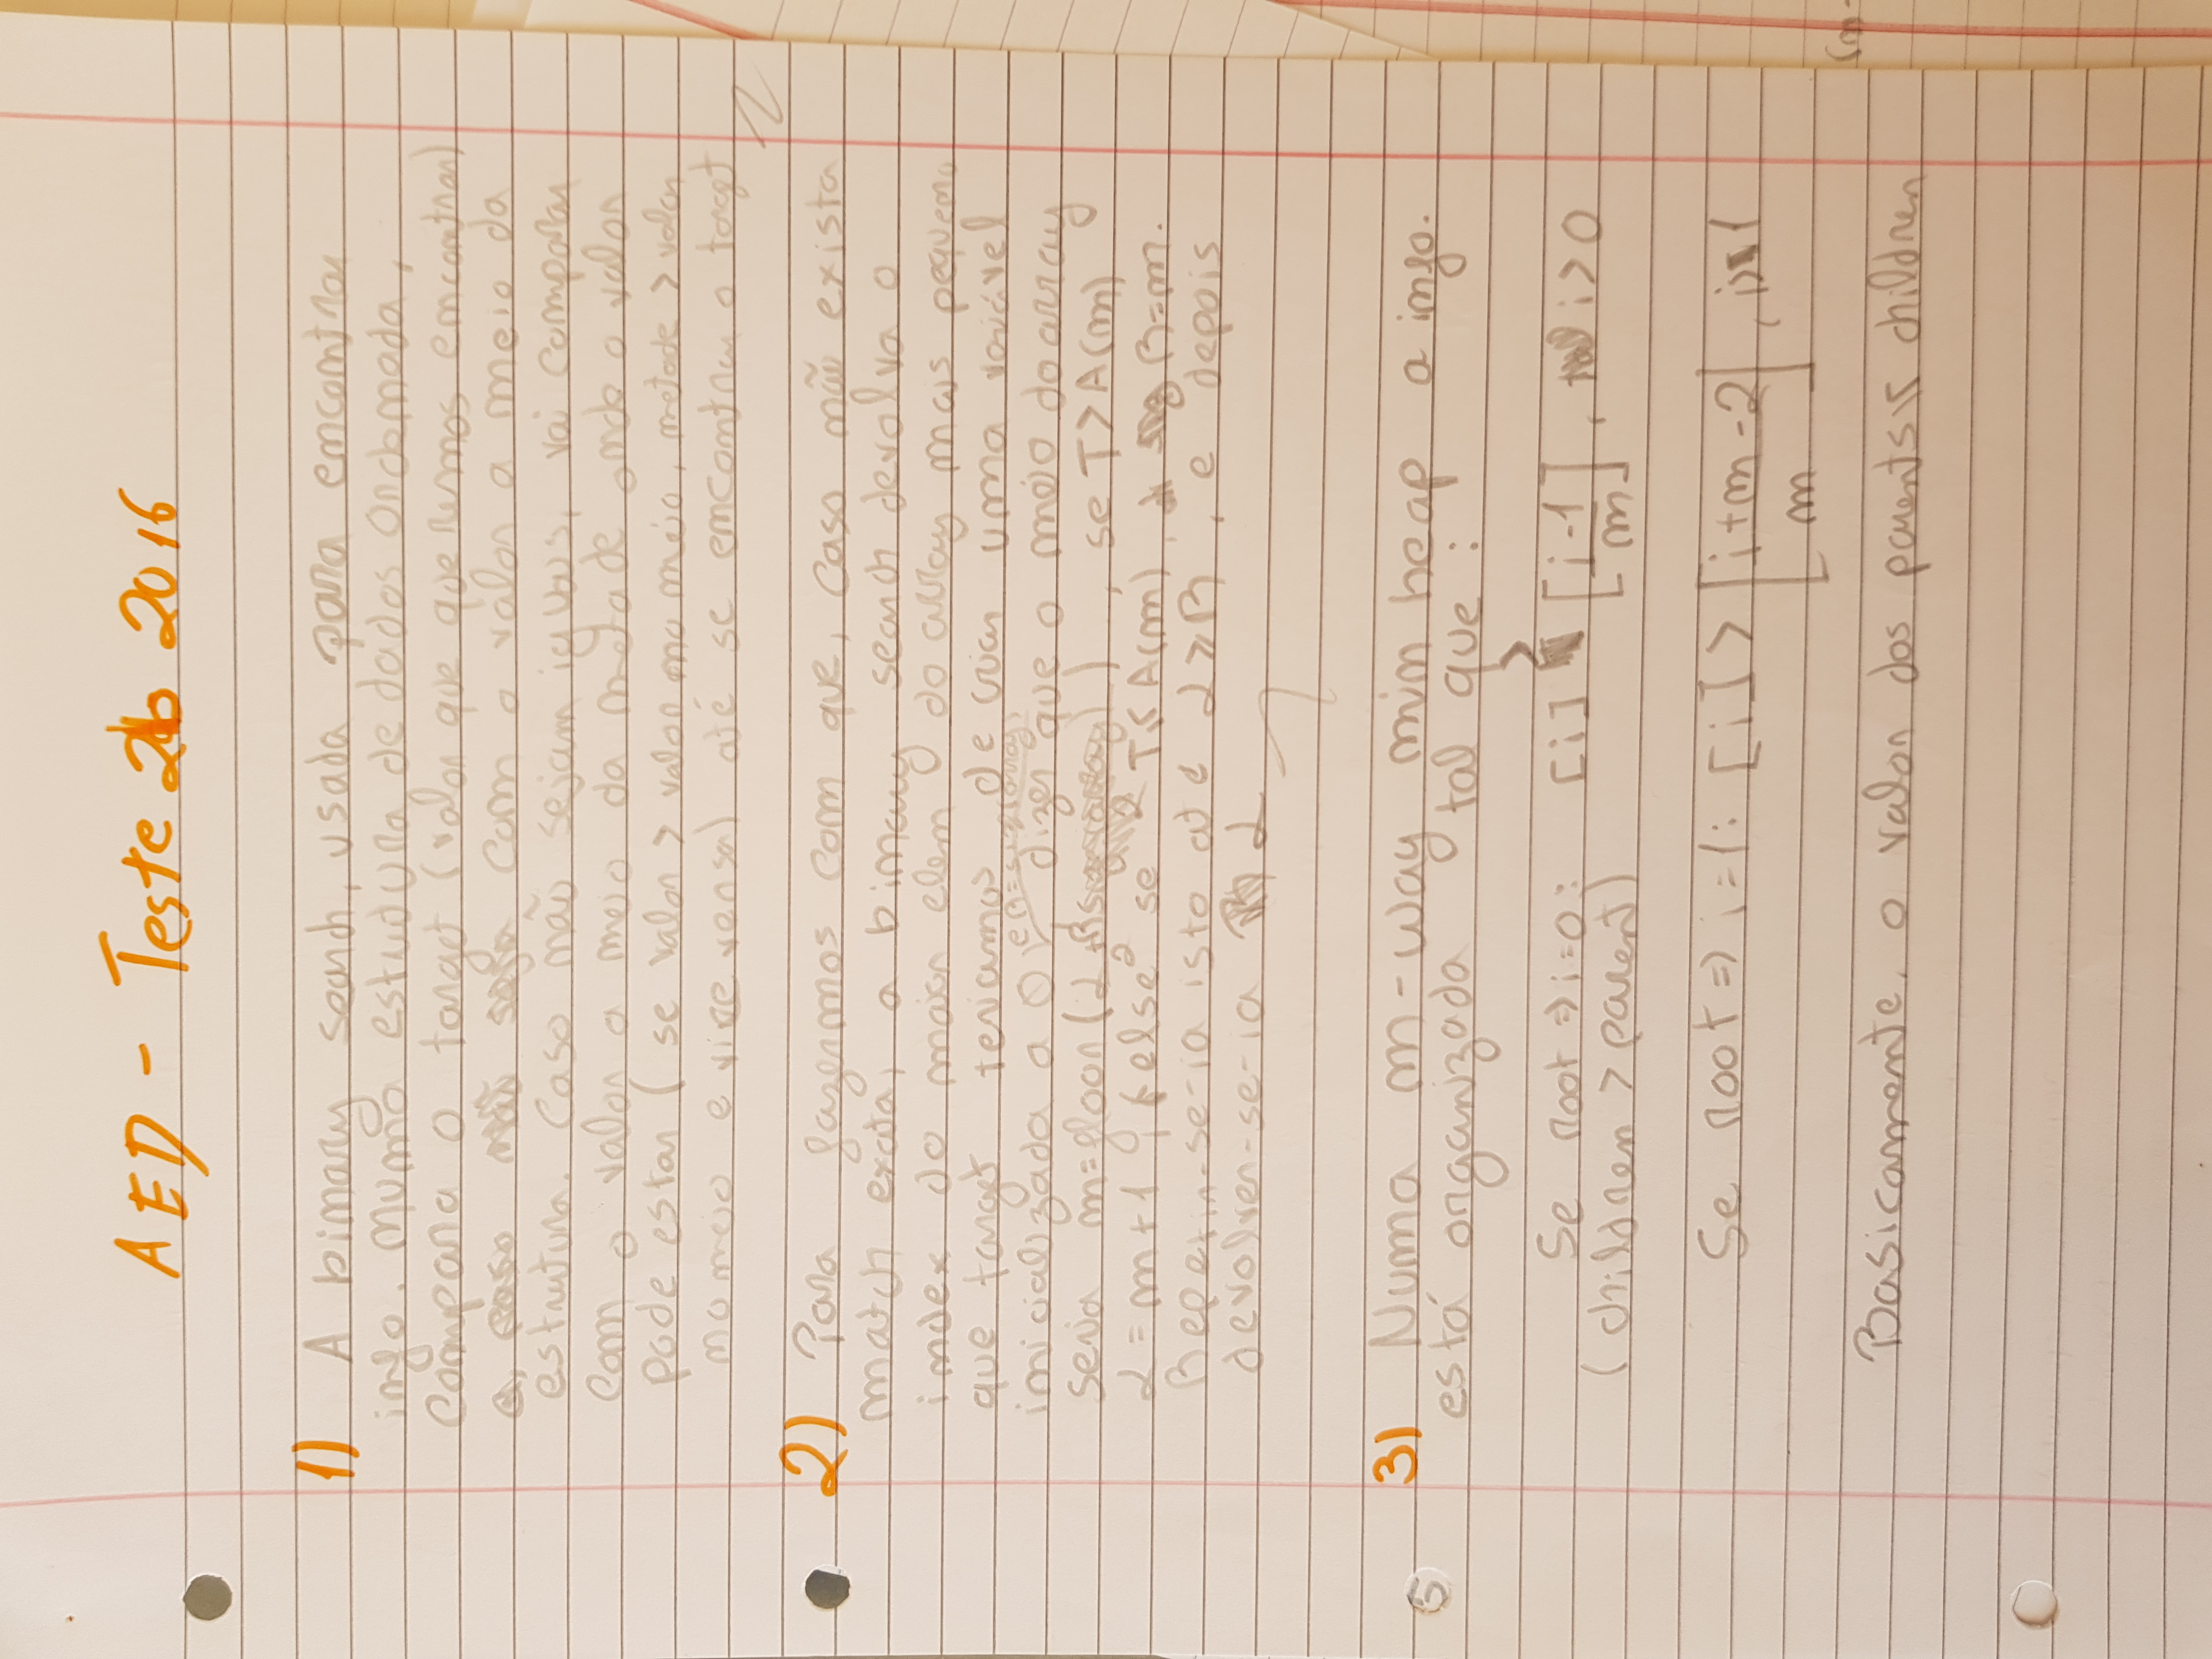 AED - Teste 2b 2016
1) A binary search, usada para encontrar
info. numa estrutura de dados ordenada,
compara o target (valor que queremos encontrar)
com o valor a meio da
estrutura. Caso não sejam iguais, vai comparar
com o valor a meio da metade onde o valor
pode estar (se valor > valor no meio, metade > valor
no meio e vice versa) até se encontrar o target
2) Para fazermos com que, caso não exista
match exata, a binary search devolva o
index do maior elem do array mais pequeno
que target teriamos de criar uma variável
inicializada a 0 e R=size(array), dizer que o meio do array
seria m=floor(L+R / 2), se T>A(m)
L=m+1; else se T≤A(m), R=m.
Repetir-se-ia isto até L≥R, e depois
devolver-se-ia L
3) Numa m-way min heap a info.
está organizada tal que:
Se root ⇒ i=0: [i] > [i-1 / m], i>0
(children > parent)
Se root ⇒ i=1: [i] > [i+m-2 / m], i>1
Basicamente, o valor dos parents ≤ children